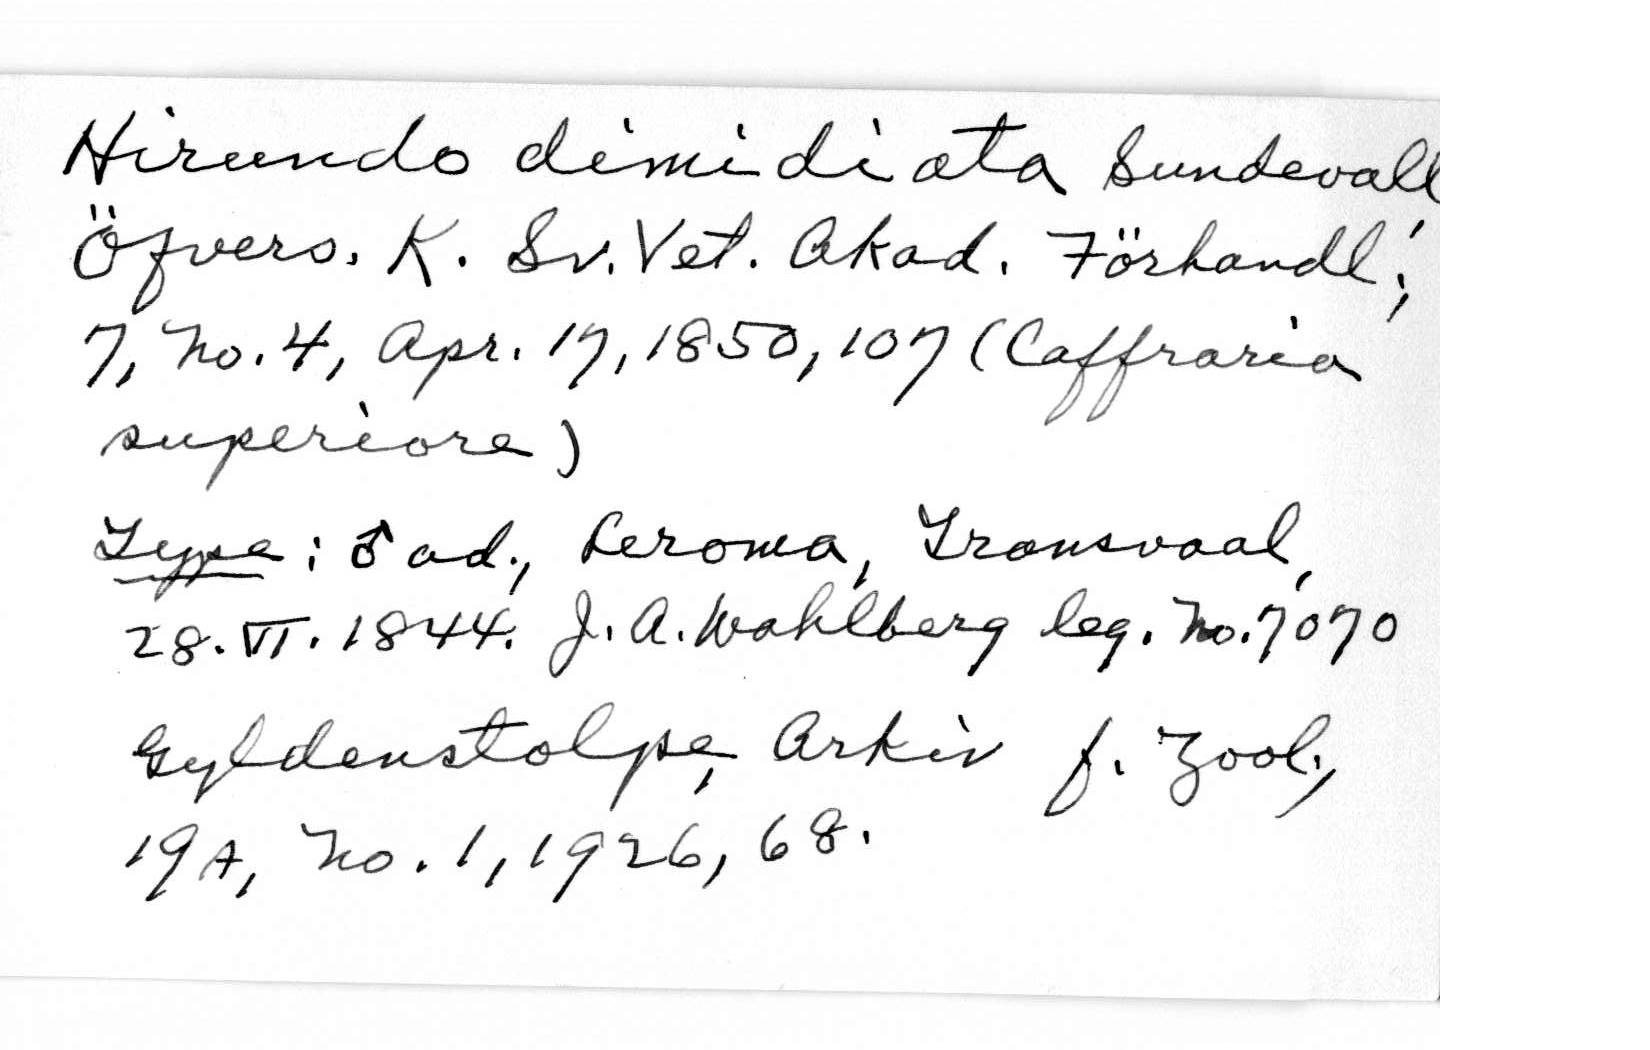 Hirundo dimidiata Sundevall
Öfvers. K. Sv. Vet. Akad. Förhandl.,
7, No. 4, Apr. 17, 1850, 107 (Caffraria
superiore)
Type: ♂ ad., Leroma, Transvaal,
28. VI. 1844. J. A. Wahlberg leg. No. 7070
Gyldenstolpe, Arkiv f. Zool.,
19A, No. 1, 1926, 68.